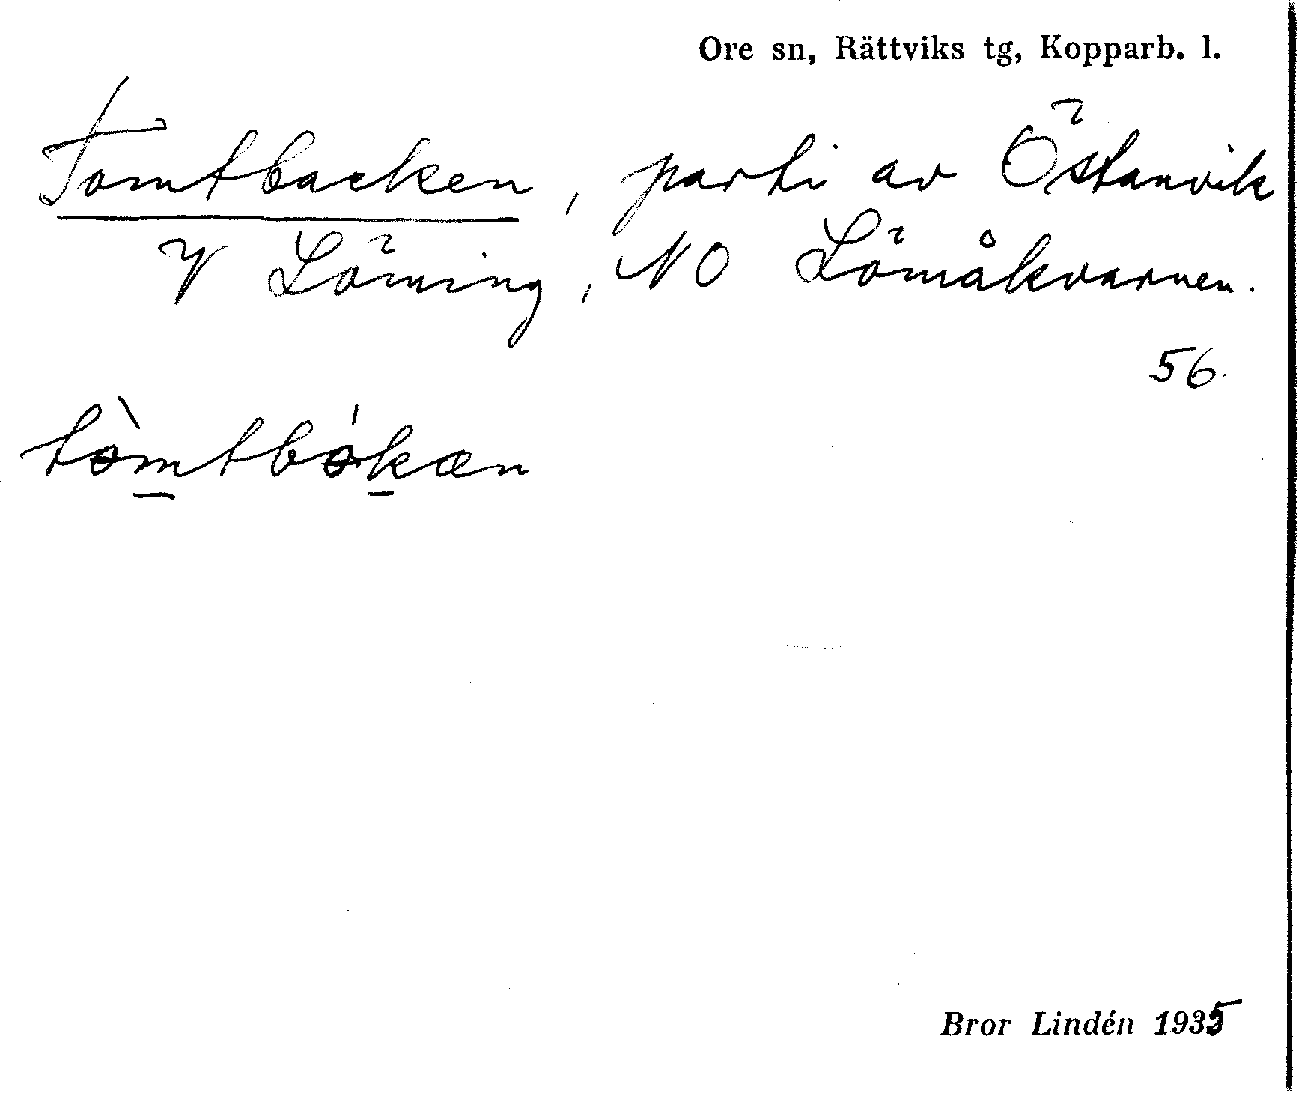 Ore sn, Rättviks tg, Kopparb. l.
Tomtbacken, parti av Östanvik
V Löning, NO Lömåkvarnen.
56.
tòmtbókæn
Bror Lindén 1935